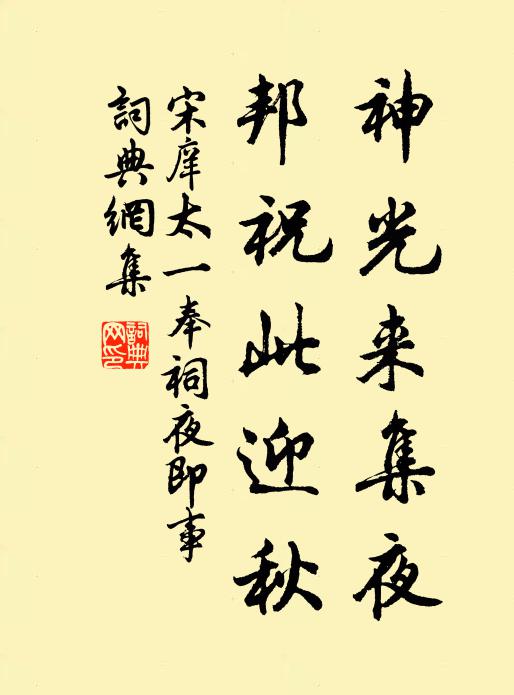 神光来集夜
邦祝此迎秋
宋庠太一奉祠夜即事
詞典網集
詞典網印